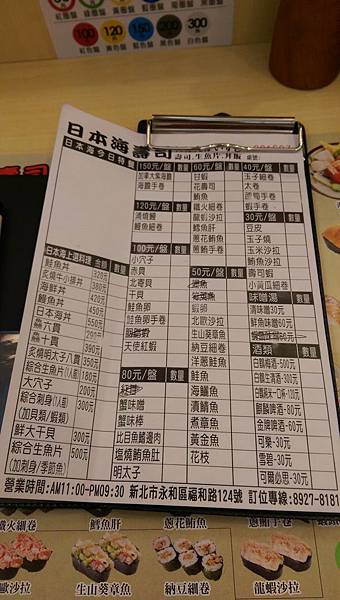 100元 120元 150元 200元 300元
日本海壽司
壽司.生魚片.丼飯
日本海今日特餐
150元/盤 數量
海膽手卷
120元/盤 數量
清燒鰻
鰻魚細卷
100元/盤 數量
小穴子
赤貝
北寄貝
干貝
鮭魚卵
鮭魚卵手卷
天使紅蝦
80元/盤 數量
蟹味噌
蟹味棒
比目魚鰭邊肉
塩燒鮪魚肚
明太子
60元/盤 數量
甘蝦
花壽司
鮪魚
鐵火細卷
龍蝦沙拉
鱈魚肝
蔥花鮪魚
蔥鮪手卷
50元/盤 數量
蝦卵
北歐沙拉
生山葵章魚
納豆細卷
洋蔥鮭魚
鮭魚
海鱺魚
漬鯖魚
煮章魚
黃金魚
花枝
40元/盤 數量
玉子細卷
太卷
蘆筍手卷
蝦手卷
30元/盤 數量
豆皮
玉子燒
玉米沙拉
鮪魚沙拉
壽司蝦
小黃瓜細卷
味噌湯 數量
清味噌30元
鮮魚味噌60元
酒類 數量
白鶴梅酒-500元
白鶴生清酒-300元
麒麟啤酒-80元
金牌啤酒-60元
可樂-30元
雪碧-30元
可爾必思-30元
日本海上選料理 金額 數量
鮭魚丼 320元
炙燒牛小排丼 380元
海鮮丼 420元
鰻魚丼 450元
日本海丼 550元
六貫 290元
十貫 390元
炙燒明太子八貫 350元
綜合生魚片(1人份) 180元
大穴子 200元
綜合刺身(1人份) 300元
(加貝類/蝦類)
鮮大干貝 300元
綜合生魚片 500元
(加刺身/季節魚)
營業時間:AM11:00-PM09:30 新北市永和區福和路124號 訂位專線:8927-8181
鐵火細卷 鱈魚肝 蔥花鮪魚 蔥鮪手卷
歐沙拉 生山葵章魚 納豆細卷 龍蝦沙拉